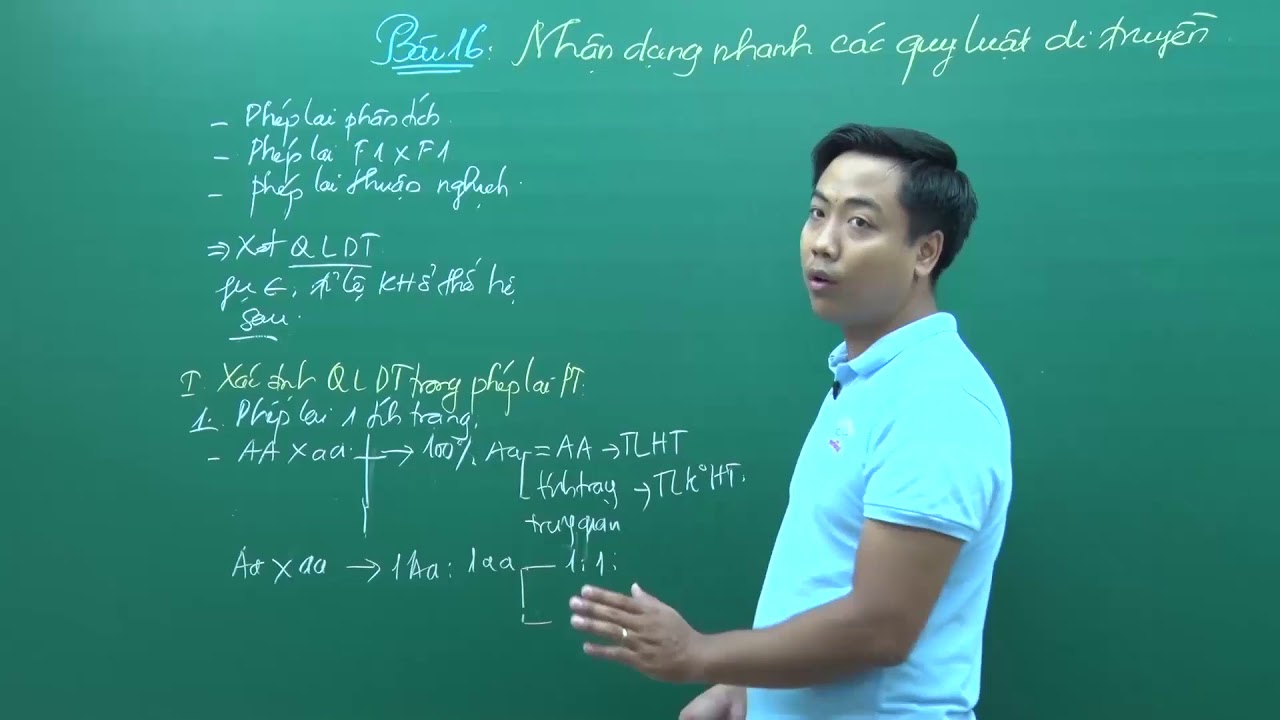 Bài 16: Nhận dạng nhanh các quy luật di truyền
- Phép lai phân tích.
- Phép lai F1 x F1
- phép lai thuận nghịch.
⇒ Xđ QLDT
tỉ lệ KH ở thế hệ
sau.
I. Xác định QLDT trong phép lai PT.
1. Phép lai 1 tính trạng.
- AA x aa → 100% Aa = AA → TLHT
tính trạng → TL K° HT.
trung gian
Aa x aa → 1Aa : 1aa 1:1